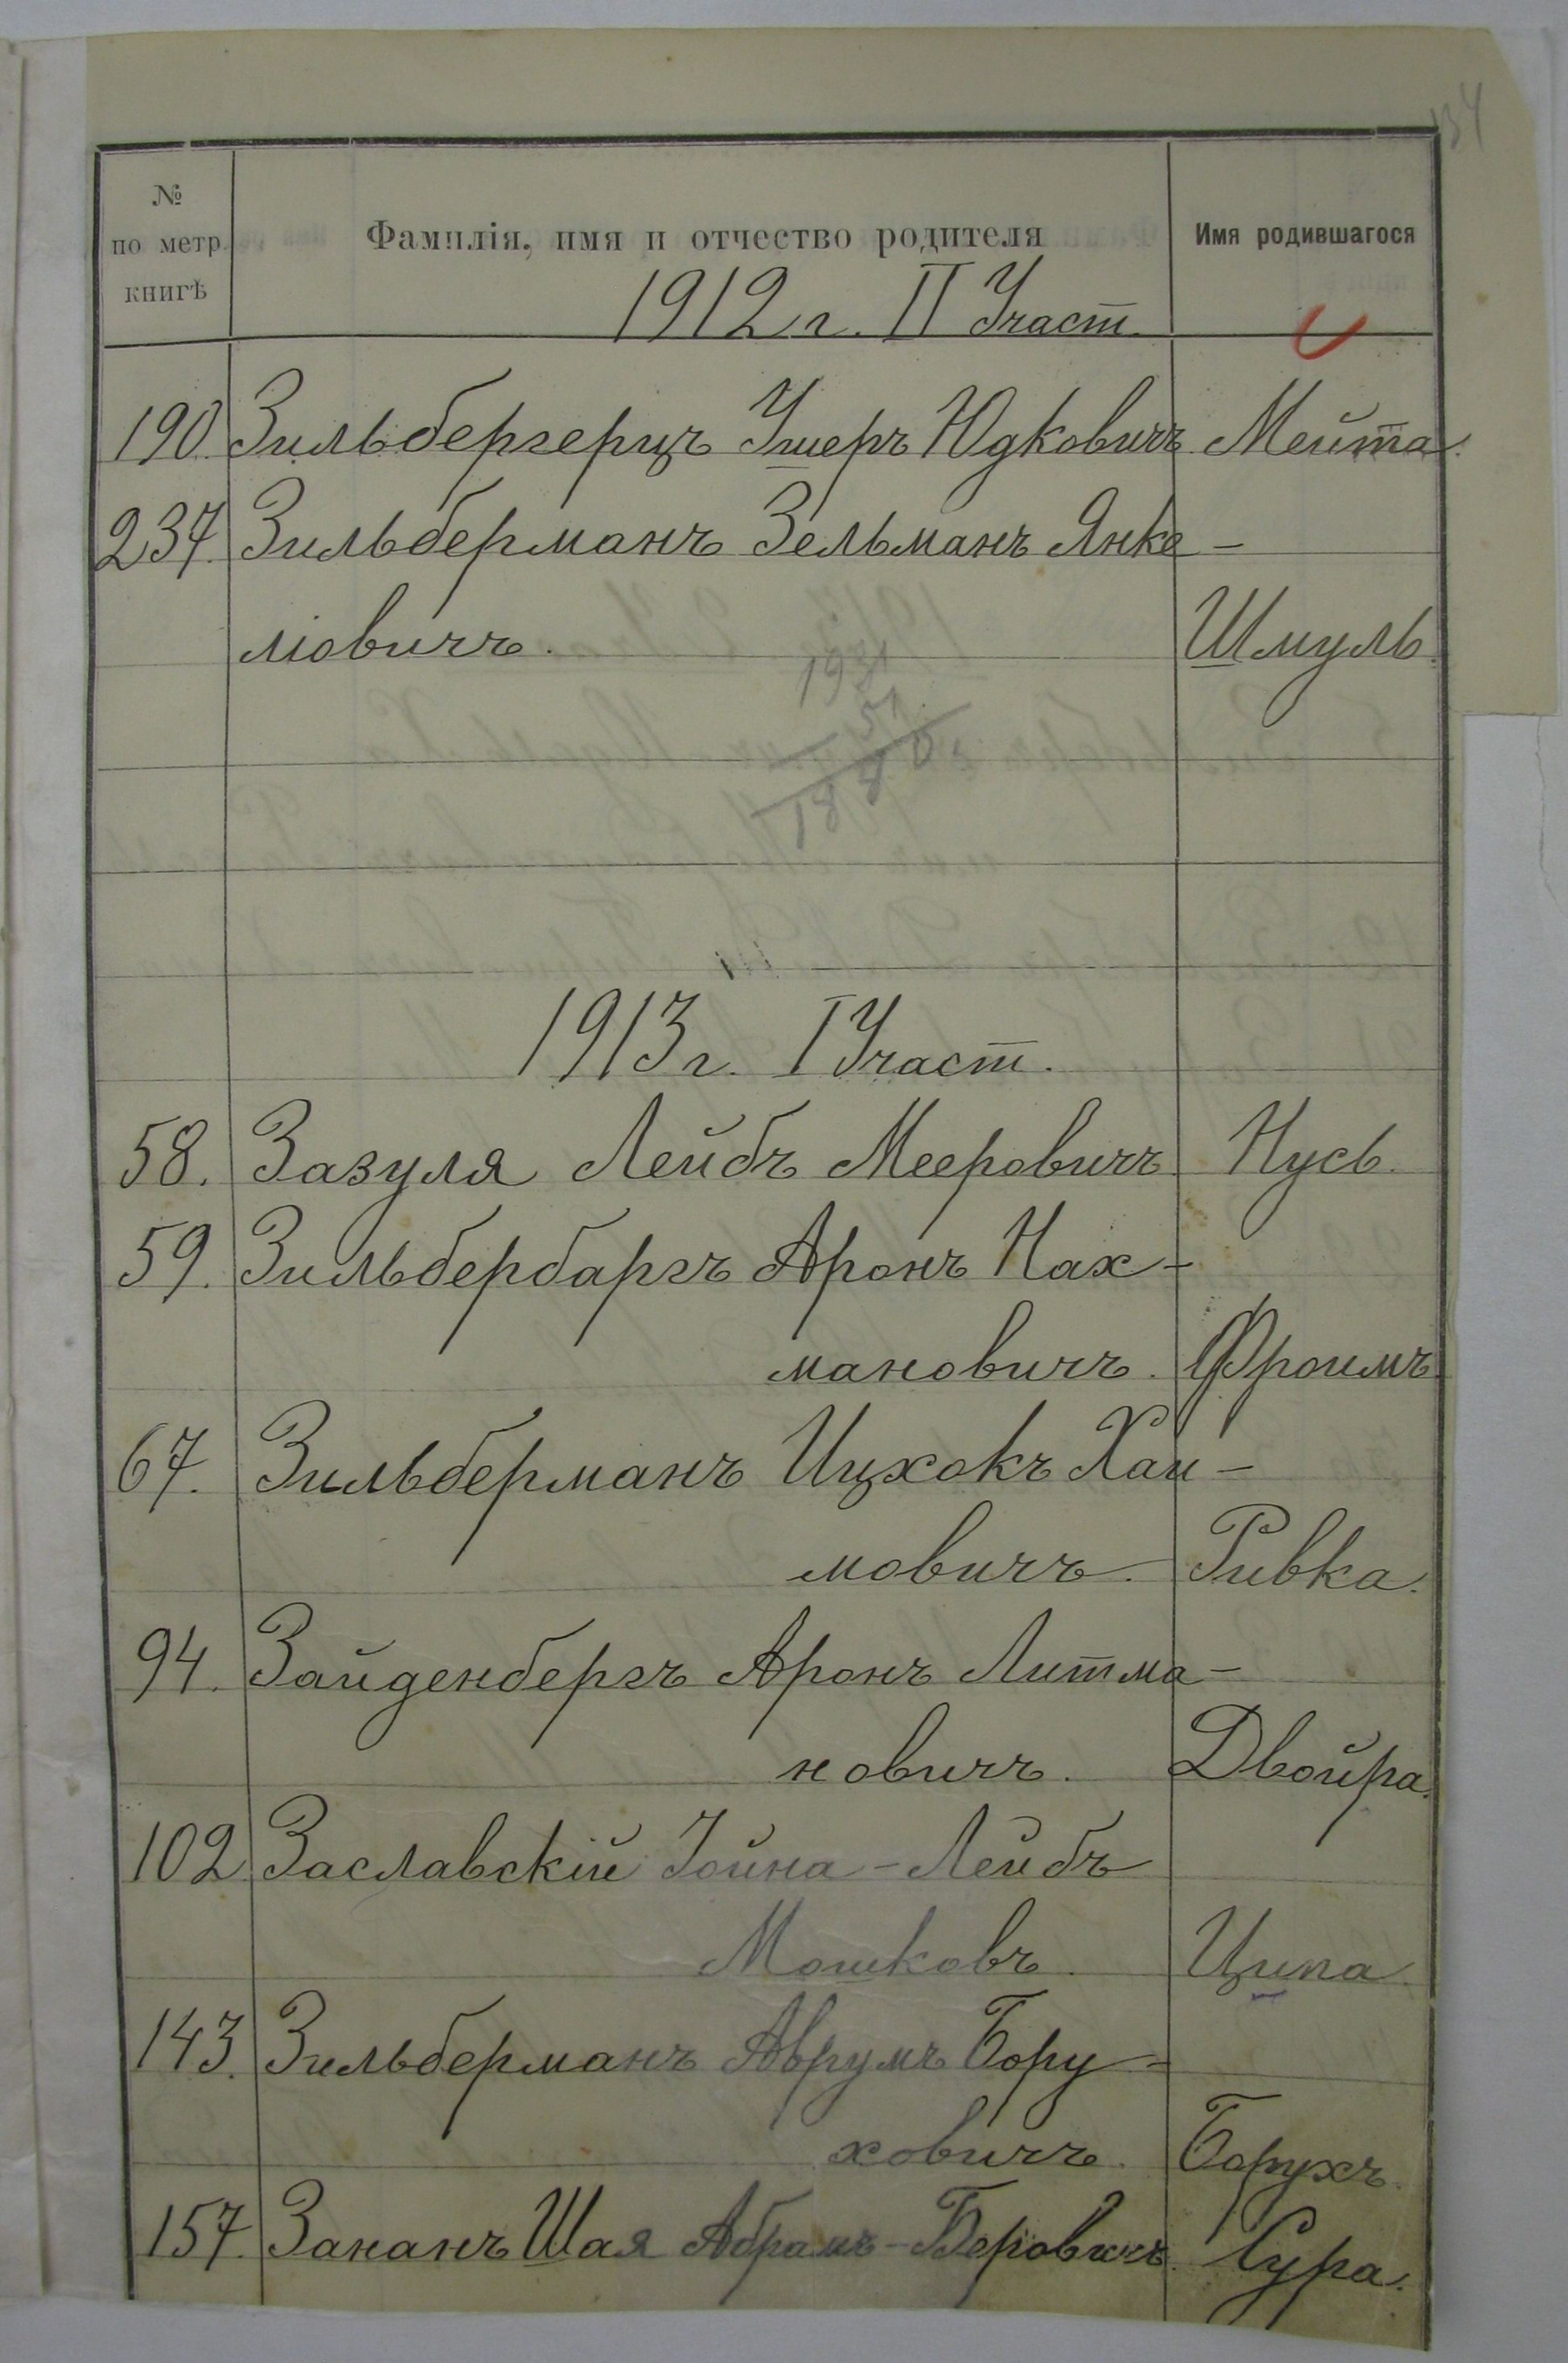 134
№
по метр.
книгѣ
Фамилія, имя и отчество родителя
Имя родившагося
1912 г. II Участ.
190 Зильбергерцъ Ушеръ Юдковичъ Мейта.
237. Зильберманъ Зельманъ Янке-
ліовичъ. Шмуль.
1931
51
1880
1913 г. I Участ.
58. Зазуля Лейбъ Мееровичъ Нусь.
59. Зильбербаргъ Аронъ Нах-
мановичъ. Фроимъ.
67. Зильберманъ Ицхокъ Хаи-
мовичъ. Ривка.
94. Зайденбергъ Аронъ Литма-
новичъ. Двойра.
102 Заславскій Іойна-Лейбъ
Мошковъ. Ципа.
143. Зильберманъ Аврумъ Бору-
ховичъ. Борухъ.
157. Зананъ Шая Абрамъ-Беровичъ. Сура.